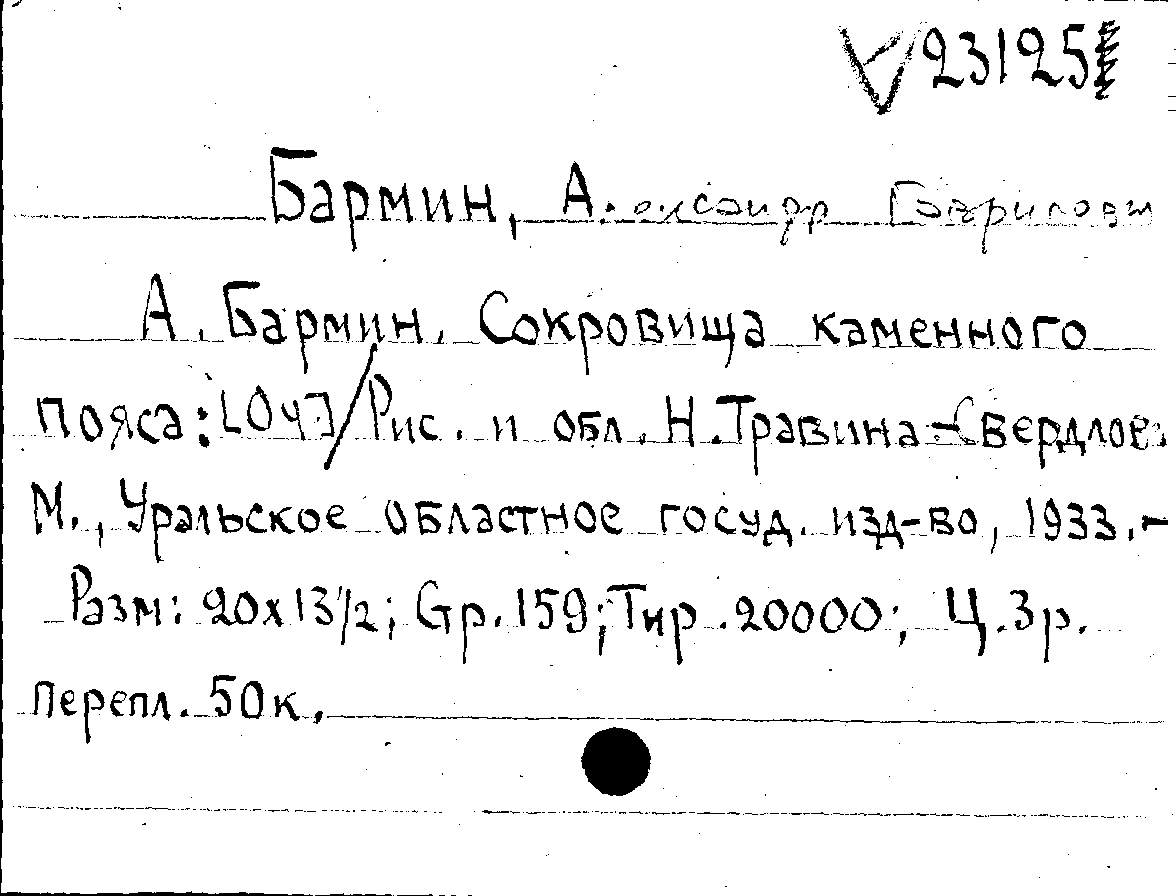 V 23125
Бармин, Александр Гаврилович
А. Бармин. Сокровища каменного
пояса: [Оч] / Рис. и обл. Н. Травина - Свердлов.
М., Уральское областное госуд. изд-во, 1933. -
Разм: 20х13 1/2; Стр. 159; Тир. 20000; Ц. 3р.
перепл. 50к.